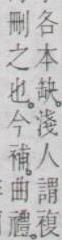 各本缺。淺人謂複
刪之也。今補。曲禮。